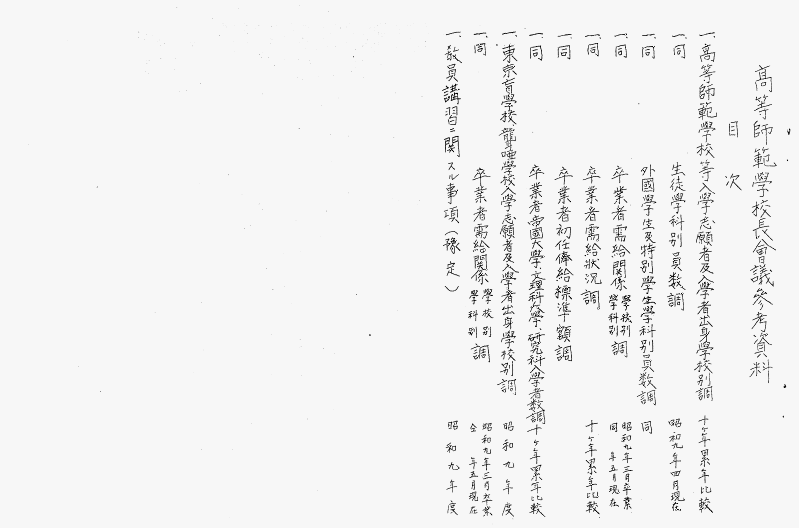 高等師範學校長會議參考資料
目次
一、高等師範學校等入學志願者及入學者出身學校別調 十ヶ年累年比較
一、同 生徒學科別員數調 昭和九年四月現在
一、同 外國學生及特別學生學科別員數調 同
一、同 卒業者需給關係 學校別 學科別 調 昭和九年三月卒業 同年五月現在
一、同 卒業者需給狀況調 十ヶ年累年比較
一、同 卒業者初任俸給標準額調
一、同 卒業者帝國大學、文理科大學、研究科入學者數調 十ヶ年累年比較
一、東京盲學校、聾啞學校入學志願者及入學者出身學校別調 昭和九年度
一、同 卒業者需給關係 學校別 學科別 調 昭和九年三月卒業 仝年五月現在
一、敎員講習ニ關スル事項(豫定) 昭和九年度